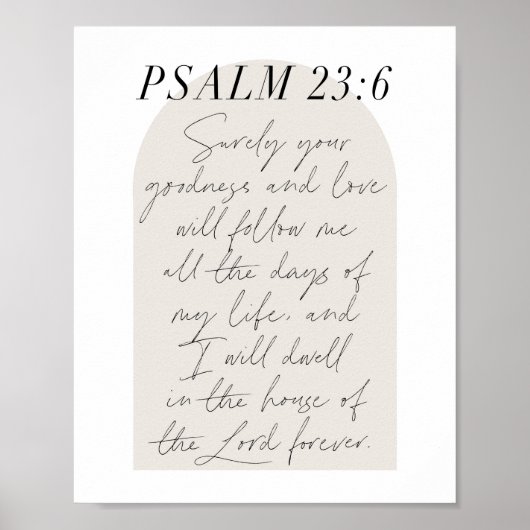 PSALM 23:6
Surely your
goodness and love
will follow me
all the days of
my life, and
I will dwell
in the house of
the Lord forever.